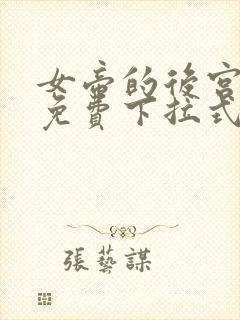 女帝的後宮
免費下拉式
張藝謀